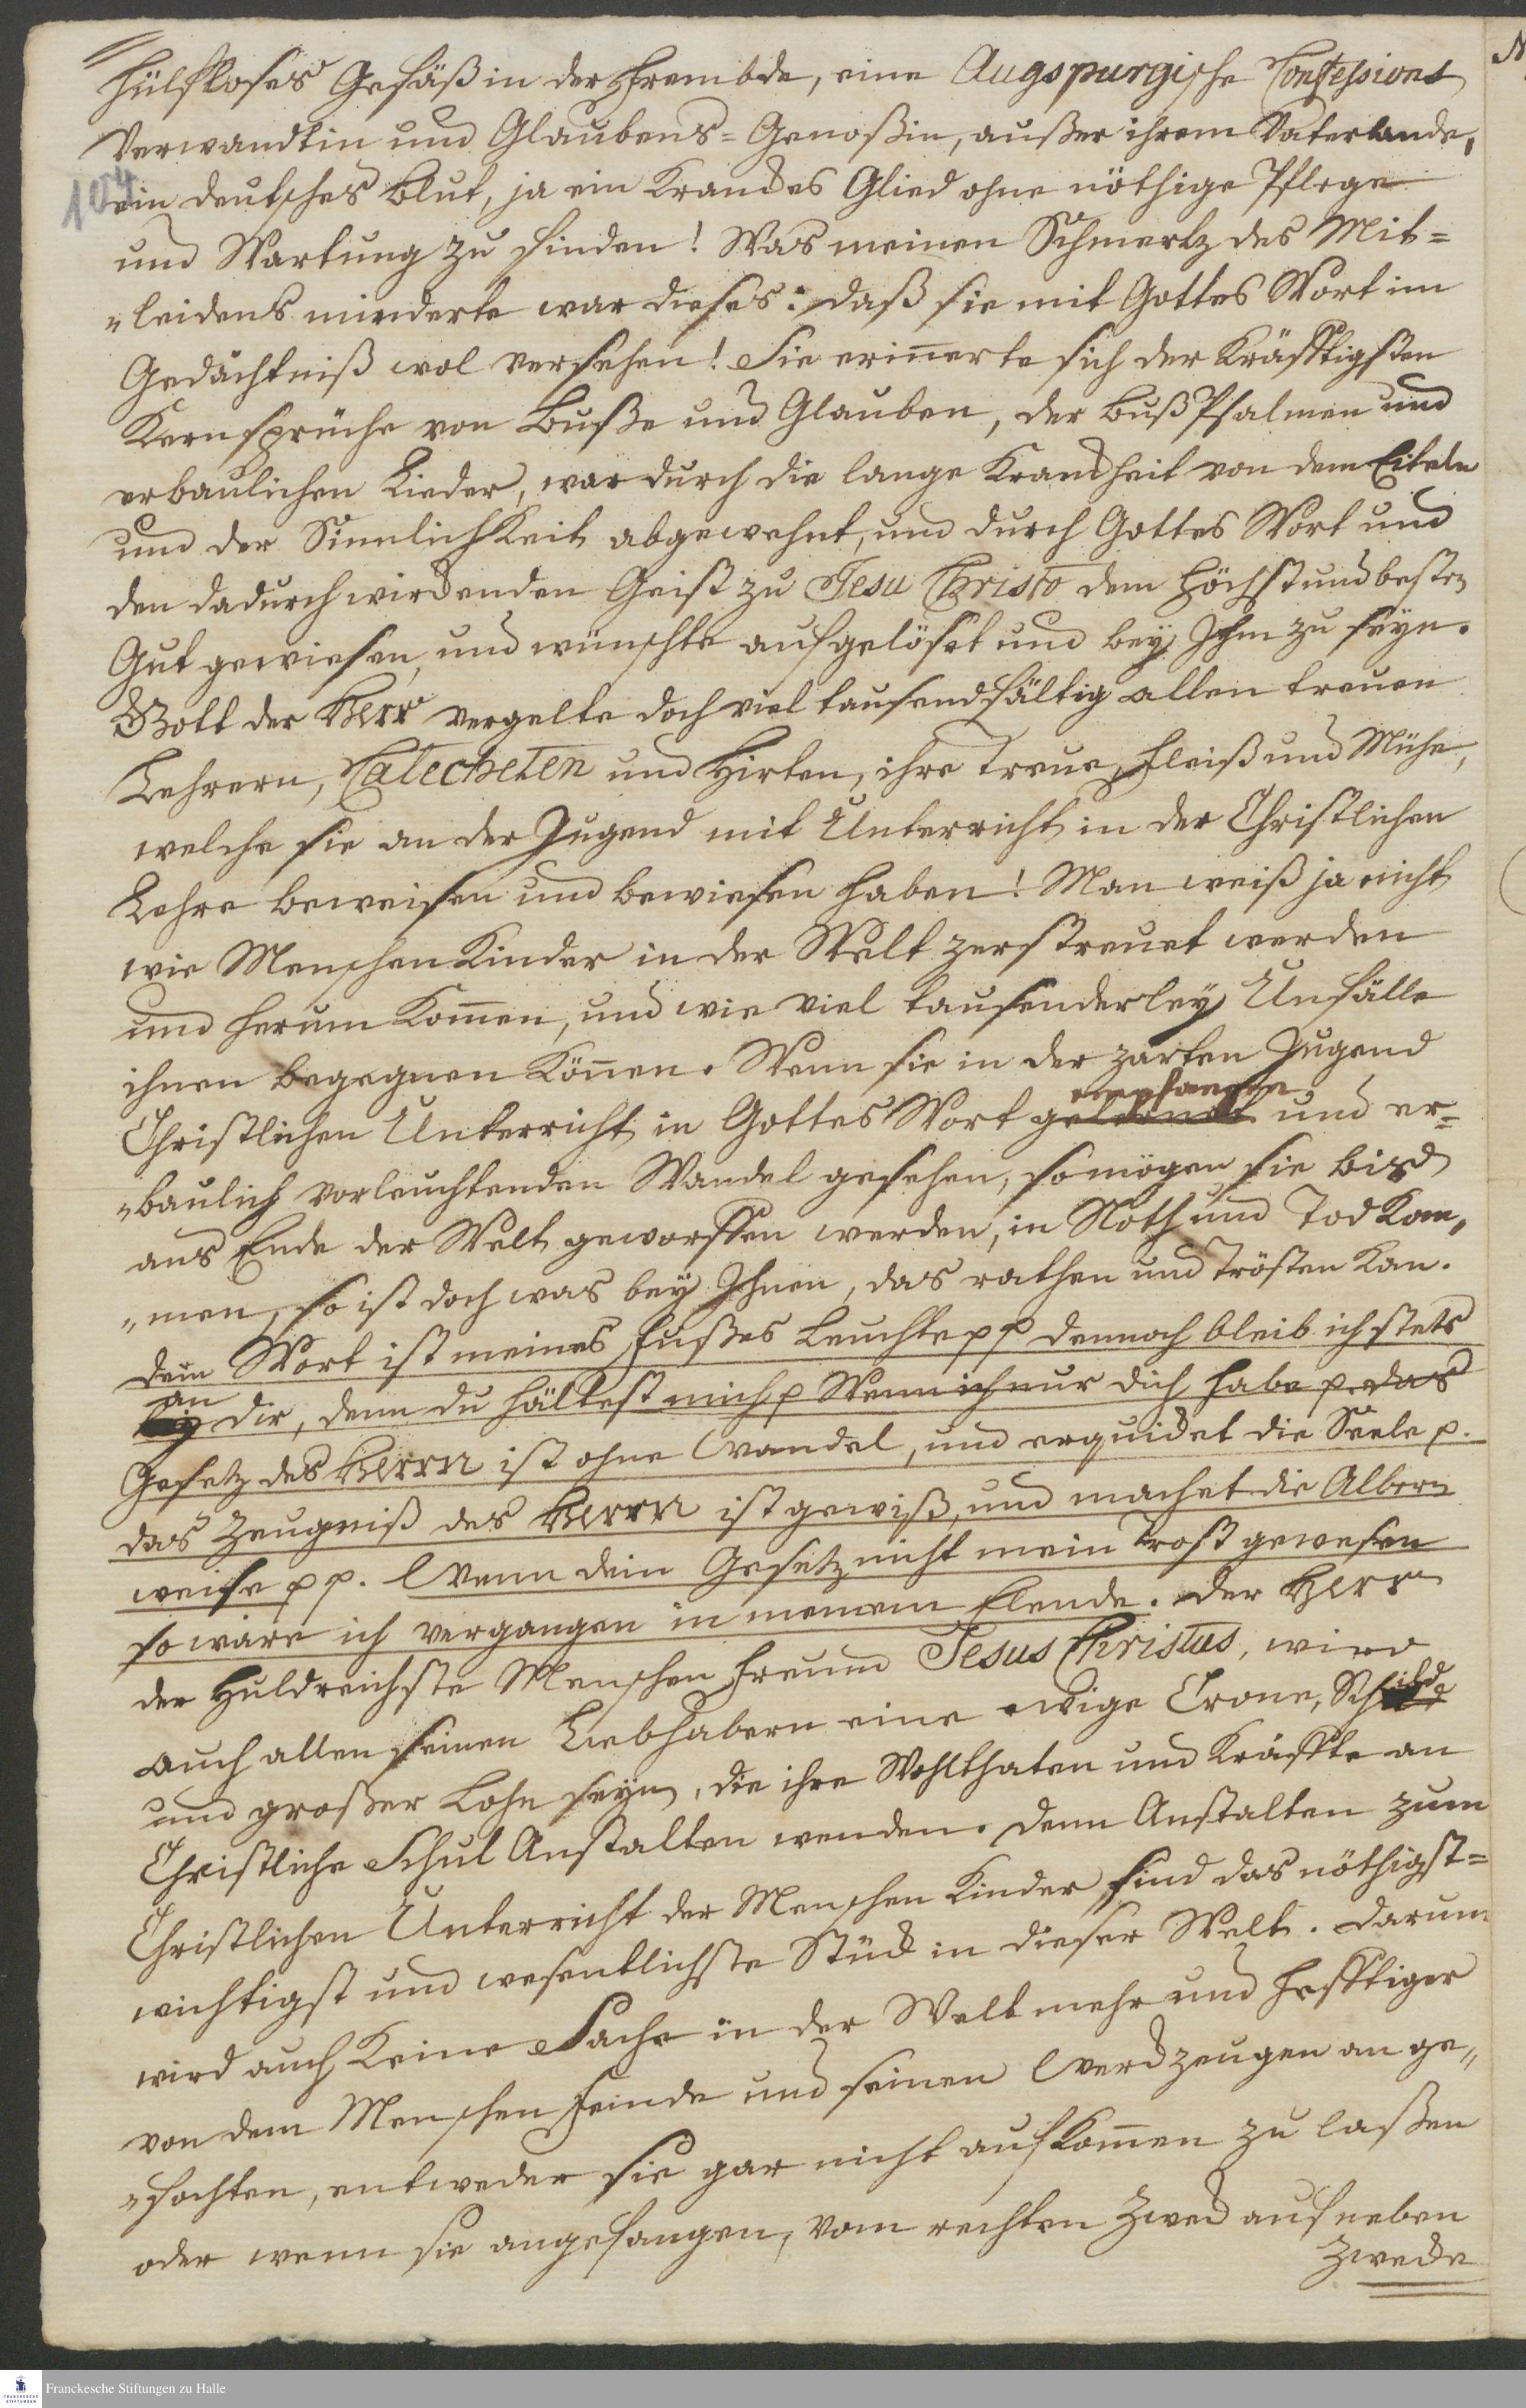 hülfloses Gefäß in der Frembde, eine Augspurgische Confessions
Verwandtin und Glaubens-Genoßin, außer ihrem Vaterlande,
104
ein deutsches Blut, ja ein Krandes Glied ohne nöthige Pflege
und Wartung zu finden! Was meinen Schmertz des Mit=
"leidens minderte war dieses: daß sie mit Gottes Wort im
Gedächtniß wol versehen! Sie erin̄erte sich der Kräfftigsten
Kernsprüche von Buße und Glauben, der Buß Psalmen und
erbaulichen Lieder, war durch die lange Krankheit von dem Eiteln
und der Sinnlichkeit abgewehnt, und durch Gottes Wort und
den dadurch wirckenden Geist zu Jesu Christo dem höchst und besten
Gut gewiesen, und wünschte aufgelöset und bey Ihm zu seyn.
Gott der Herr vergelte doch viel tausendfältig allen treuen
Lehrern, Catecheten und Hirten, ihre Treue, Fleiß und Mühe,
welche sie an der Jugend mit Unterricht in der Christlichen
Lehre beweisen und bewiesen haben! Man weiß ja nicht
wie Menschen Kinder in der Welt zerstreuet werden
und herum kom̄en, und wie viel tausenderley Unfälle
ihnen begegnen kön̄en. Wenn sie in der zarten Jugend
empfangen
Christlichen Unterricht in Gottes Wort gelernet und er=
"baulich vorleuchtenden Wandel gesehen, so mögen sie biß
ans Ende der Welt geworffen werden, in Noth und Tod kom"
"men, so ist doch was bey Ihnen, das rathen und trösten kan.
dein Wort ist meines Fußes Leuchte pp dennoch bleib ich stets
an
bey dir, denn du hältest mich p Wenn ich nur dich habe p. das
Gesetz des Herrn ist ohne Wandel, und erquicket die Seele p.
das Zeugniß des Herrn ist gewiß, und machet die Albern
weise pp. Wenn dein Gesetz nicht mein Trost gewesen
so wäre ich vergangen in meinem Elende. der Herr
der Huldreichste Menschen Freund Jesus Christus, wird
auch allen seinen Liebhabern eine ewige Crone, Schild
und großer Lohn seyn, die ihre Wohlthaten und Kräffte an
Christliche Schul Anstalten wenden. denn Anstalten zum
Christlichen Unterricht der Menschen Kinder sind das nöthigst=
wichtigst und wesentlichste Stück in dieser Welt. darum
wird auch keine Sache in der Welt mehr und hefftiger
von dem Menschen Feinde und seinen Werckzeugen an ge"
"fochten, entweder sie gar nicht aufkom̄en zu laßen
oder wenn sie angefangen, vom rechten Zweck auf neben
Zwecke
Franckesche Stiftungen zu Halle